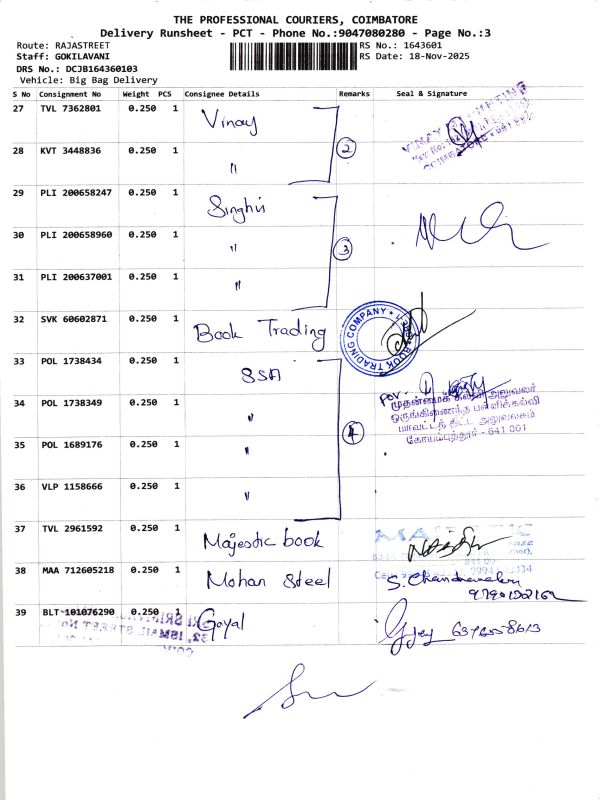 THE PROFESSIONAL COURIERS, COIMBATORE
Delivery Runsheet - PCT - Phone No.:9047080280 - Page No.:3
Route: RAJASTREET
Staff: GOKILAVANI
DRS No.: DCJB164360103
Vehicle: Big Bag Delivery
RS No.: 1643601
RS Date: 18-Nov-2025
S No Consignment No Weight PCS Consignee Details Remarks Seal & Signature
27 TVL 7362801 0.250 1 Vinay
28 KVT 3448836 0.250 1 " 2
29 PLI 200658247 0.250 1 Singhvi
30 PLI 200658960 0.250 1 " 3
31 PLI 200637001 0.250 1 "
32 SVK 60602871 0.250 1 Book Trading
BOOK TRADING COMPANY
33 POL 1738434 0.250 1 SSA
34 POL 1738349 0.250 1 "
முதன்மைக் கல்வி அலுவலர்
ஒருங்கிணைந்த பள்ளிக்கல்வி
மாவட்டத் திட்ட அலுவலகம்
கோயம்புத்தூர் - 641 001
35 POL 1689176 0.250 1 " 4
36 VLP 1158666 0.250 1 "
37 TVL 2961592 0.250 1 Majestic book
38 MAA 712605218 0.250 1 Mohan Steel
39 BLT 101076290 0.250 1 Goyal